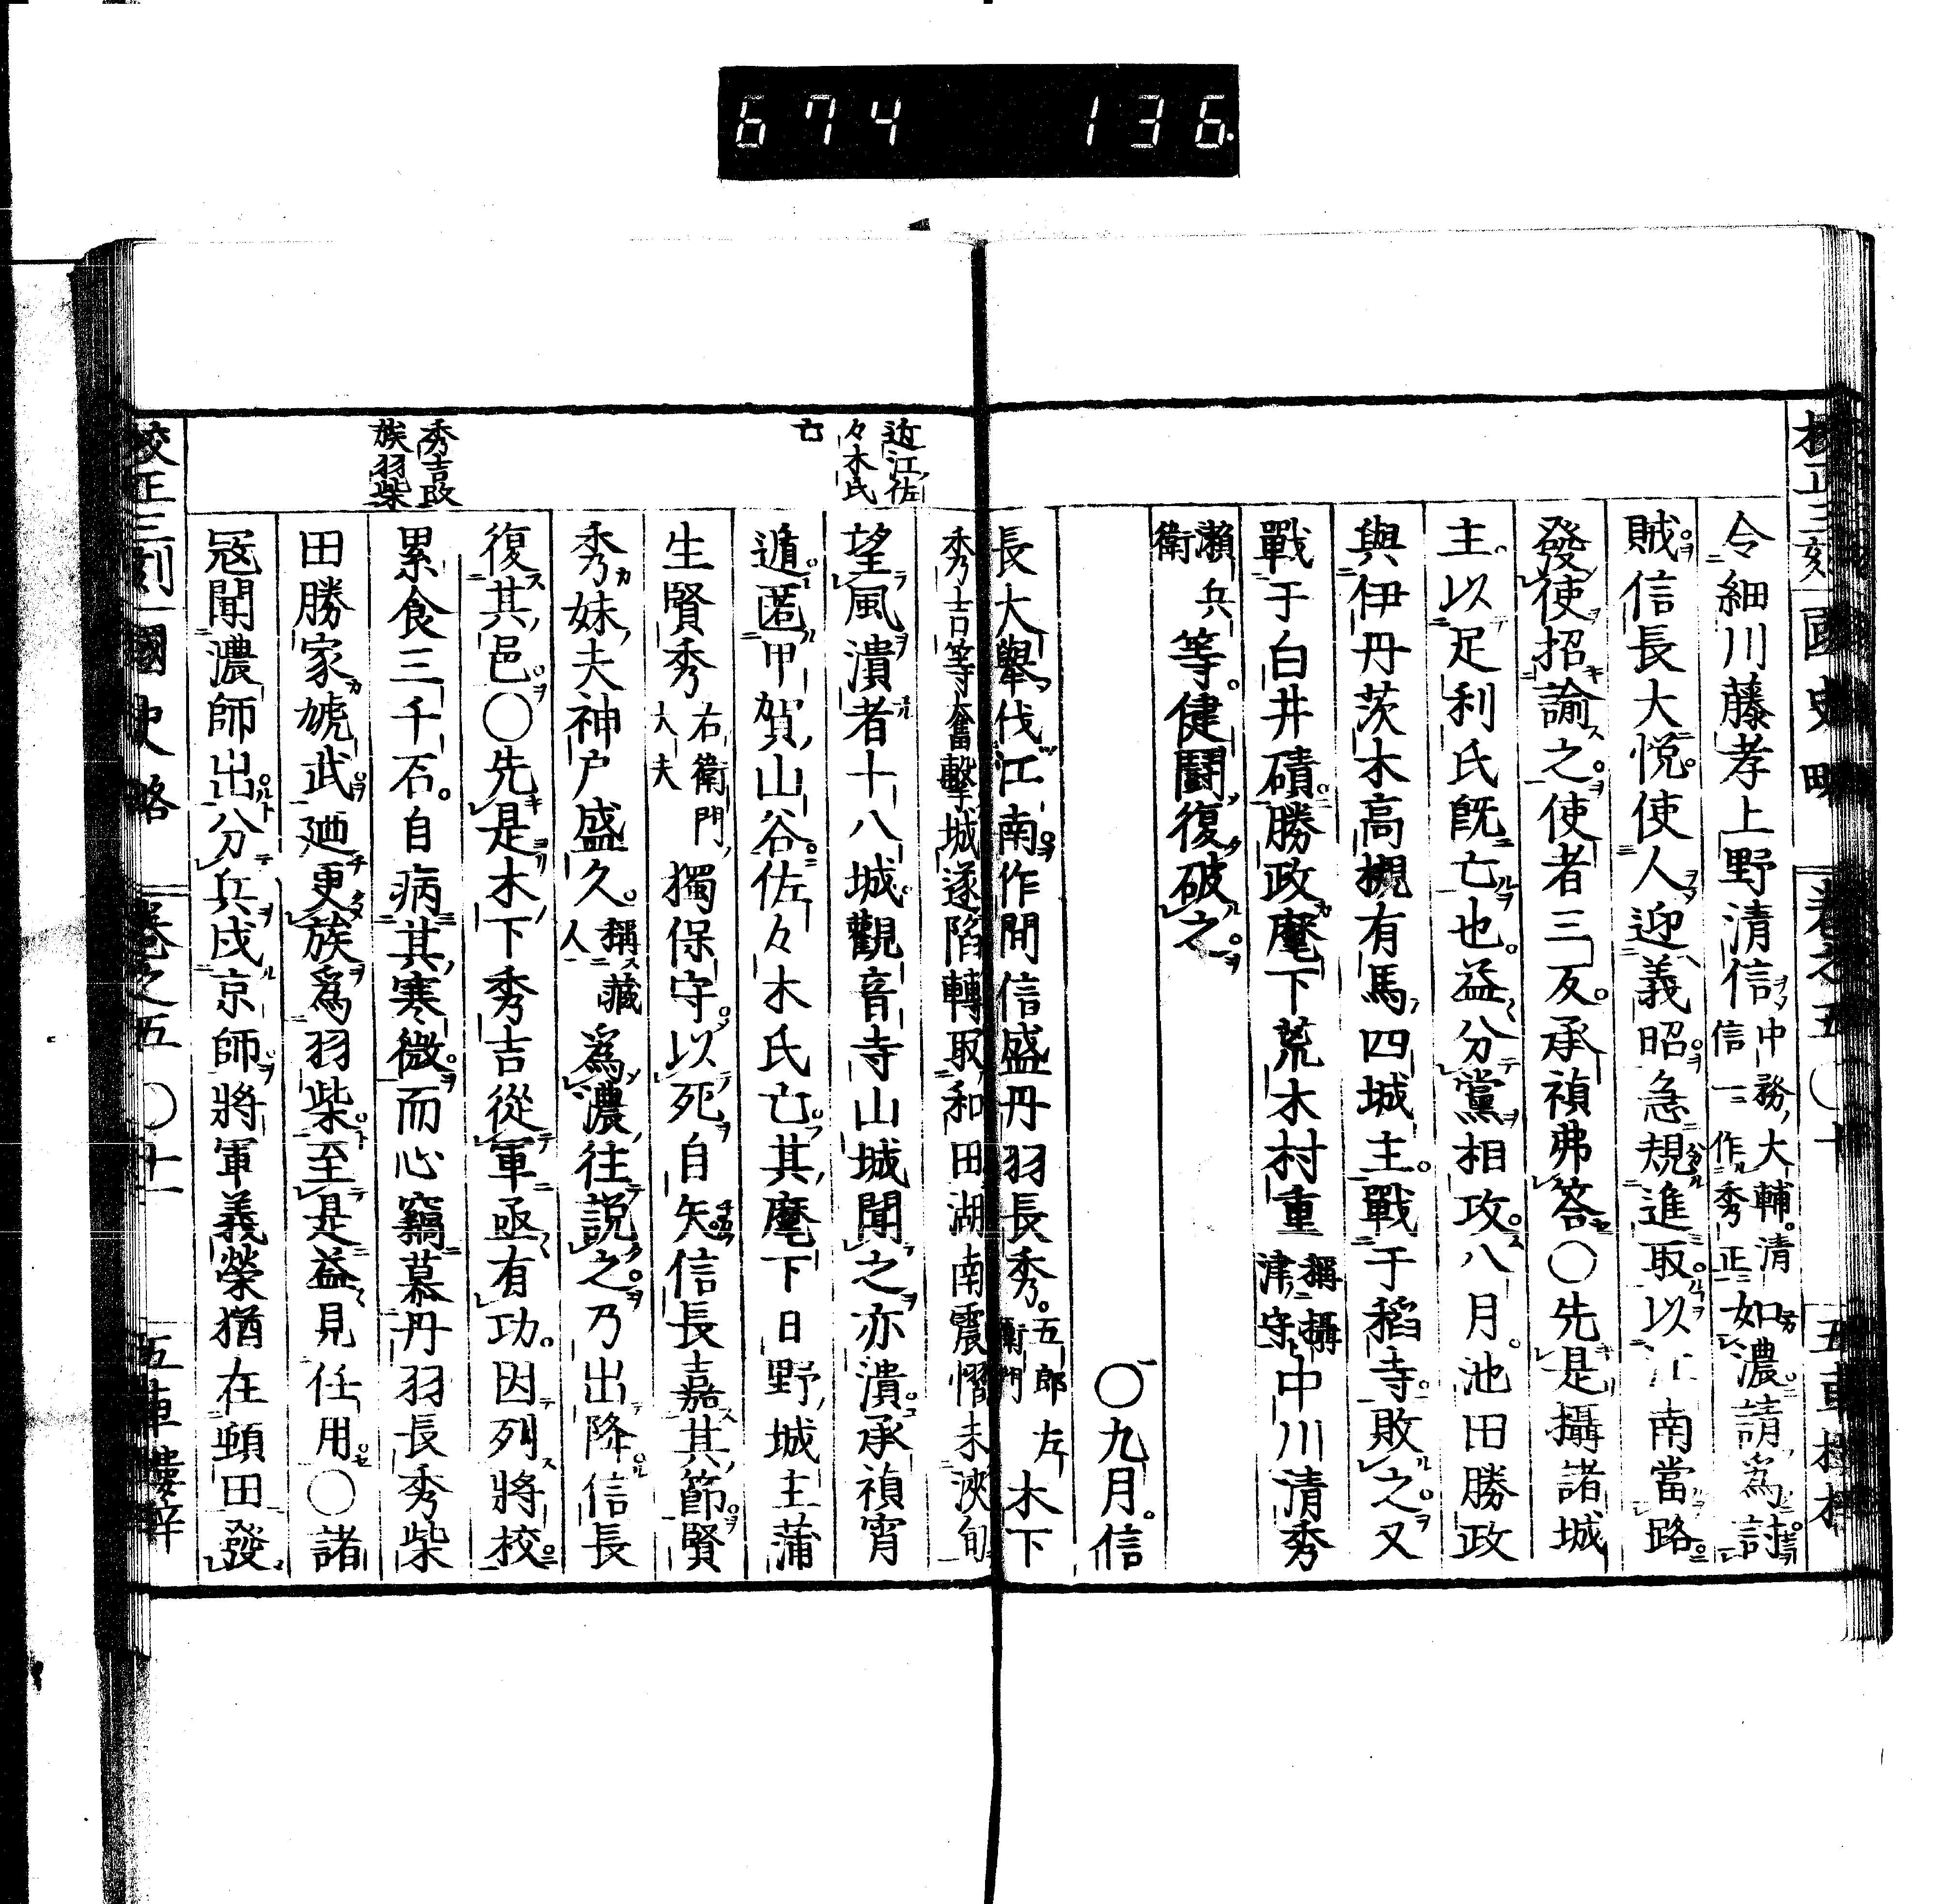 674 136
校正三刻國史略 卷之五 〇十 五車樓梓
令細川藤孝上野清信中務大輔清信一作秀正如濃請為討
賊信長大悦使人迎義昭急規進取以江南當路
發使招諭之使者三反承禎弗答〇先是攝諸城
主以足利氏既亡也益分黨相攻八月池田勝政
與伊丹茨木高槻有馬四城主戰于稻寺敗之又
戰于白井磧勝政麾下荒木村重稱攝津守中川清秀
瀨兵衛等健鬪復破之
〇九月信
長大擧伐江南作間信盛丹羽長秀五郎左衛門木下
近江佐々木氏亡
秀吉等奮擊城遂陷轉取和田湖南震慴未浹旬
望風潰者十八城觀音寺山城聞之亦潰承禎宵
遁匿甲賀山谷佐々木氏亡其麾下日野城主蒲
生賢秀右衛門大夫獨保守以死自矢信長嘉其節賢
秀妹夫神戸盛久稱藏人為濃往説之乃出降信長
復其邑〇先是木下秀吉從軍亟有功因列將校
秀吉改族羽柴
累食三千石自病其寒微而心竊慕丹羽長秀柴
田勝家虓武廼更族為羽柴至是益見任用〇諸
冦聞濃師出分兵戍京師將軍義榮猶在頓田發
校正三刻國史略 卷之五 〇十一 五車樓梓